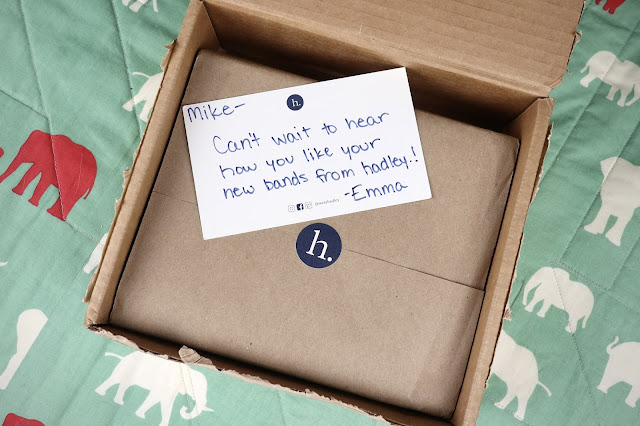 h.
Mike-
Can't wait to hear
how you like your
new bands from hadley.!
-Emma
h.